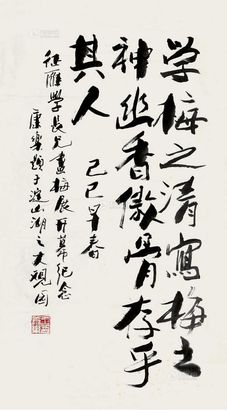 学梅之清寫梅之
神幽香傲骨存乎
其人
己巳早春
征雁學長兄畫梅展開幕紀念
康樂題于淀山湖之大觀园